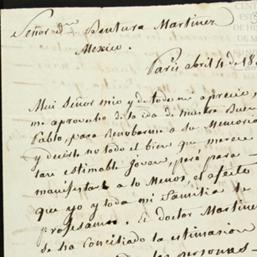 Señor dn. Ventura Martinez
Mexico.
Paris abril 4 de 18
Mui Señor mio y de todo mi aprecio,
me aprovecho de la ida de nuestro Buen
Pablo, para Renobarme a su Memoria
y decirle no todo el bien que merece
tan estimable Joven, pero para
manifestar a lo Menos, el afecto
que yo y toda mi familia le
profesamos. El doctor Martinez
se ha Conciliado la estimacion
las personas